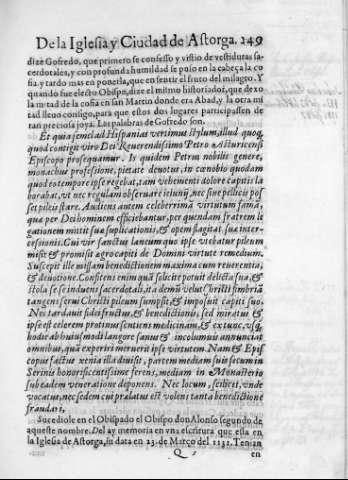 De la Iglesia y Ciudad de Astorga. 249
dize Gofredo, que primero se confesso y vistio de vestiduras sa-
cerdotales, y con profunda humildad se puso en la cabeça la co
fia. y tardo mas en ponerla, que en sentir el fruto del milagro. Y
quando fue electo Obispo, dize el mismo historiador, que dexo
la mitad de la cofia en san Martin donde era Abad, y la otra mi
tad lleuo consigo, para que estos dos lugares participassen de
tan preciosa joya. Las palabras de Gofredo son.
Et quia semel ad Hispanias vertimus stylum, illud quoq,
quod contigit viro Dei Reuerendissimo Petro Asturicensi
Episcopo prosequamur. Is quidem Petrus nobilis genere,
monachus professione, pietate deuotus, in cœnobio quodam
quod eo tempore ipse regebat, tam vehementi dolore capitis la
borabat, vt nec regulam obseruare ieiunij, nec fore pelliceis pos
set pileis stare. Audiens autem celeberrimã virtutum famã,
quæ per Dei hominem efficiebantur, per quendam fratrem le
gationem mittit suæ suplicationis, & opem flagitat. sua inter-
cersionis. Cui vir sanctus laneum quo ipse vtebatur pileum
misit & promisit agrocapiti de Domini virtute remedium.
Suscepit ille missam benedictionem maxima cum reuerentia,
& deuotione. Confitens enim quã solicite potuit delicta sua, &
stola se se induens sacerdotali, ita demũ velut Christi fimbriã
tangens serui Christi pileum sumpsit, & imposuit capiti suo.
Nec tardauit fides fructus, & benedictionis, sed miratus &
ipse est celerem protinus sentiens medicinam, & ex tunc, vsq,
hodie ab huiusmodi langore sanus & incolumis annunciat
omnibus, quã experiri meruerit ipse virtutem. Nam & Epis
copus factus xenia illa diuisit, partem mediam suit secum in
Scrinis honorificentissime ferens, mediam in Monasterio
sub eadem veneratione deponens. Nec locum, scilicet, vnde
vocatus, nec sedem cui prælatus est volens tanta benedictione
fraudari,
Sucediole en el Obispado el Obispo don Alonso segundo de
aqueste nombre. Del ay memoria en vna escritura que esta en
la Iglesia de Astorga, su data en 23. de Março del 1131. Tenian
Q
en